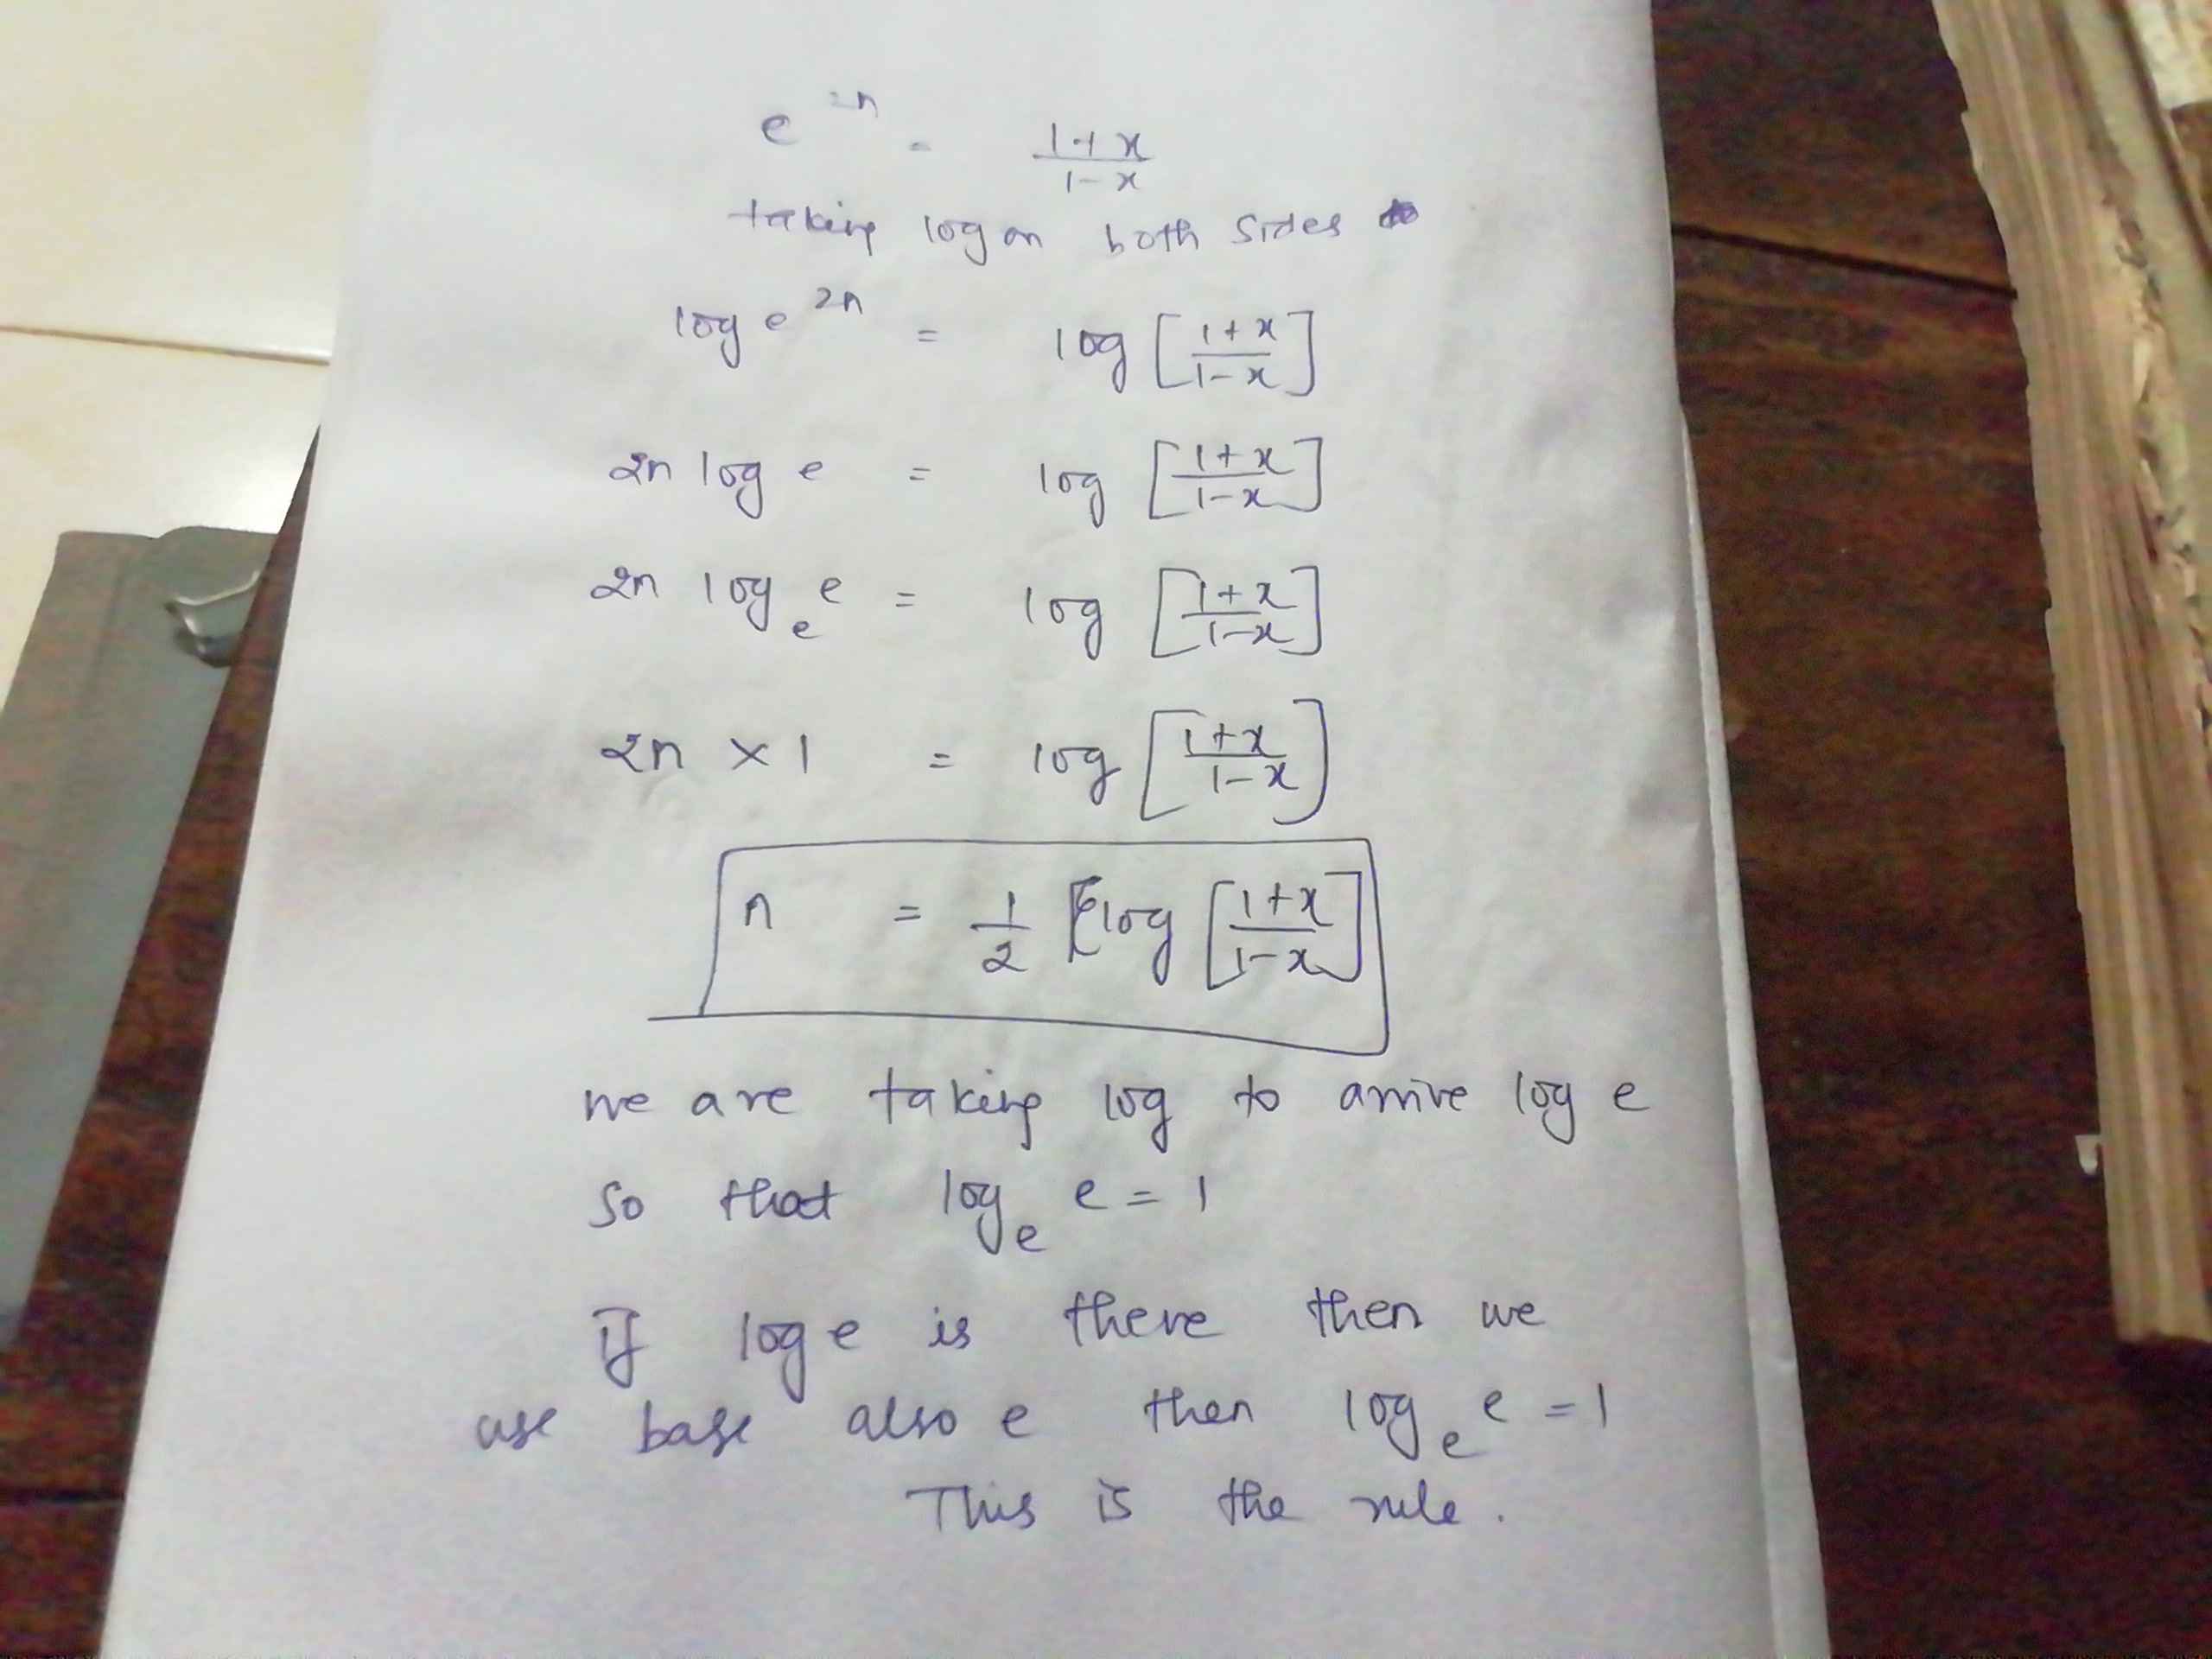 e^2n = (1+x)/(1-x)
taking log on both sides
log e^2n = log [(1+x)/(1-x)]
2n log e = log [(1+x)/(1-x)]
2n log_e e = log [(1+x)/(1-x)]
2n × 1 = log [(1+x)/(1-x)]
n = 1/2 [log [(1+x)/(1-x)]
we are taking log to arrive log e
so that log_e e = 1
If log e is there then we
use base also e then log_e e = 1
This is the rule.